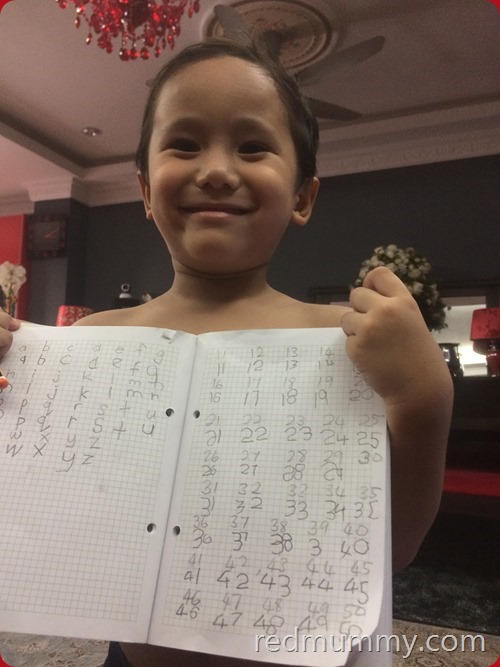 a b c d e f g
a b c d e f g
i j k l m n
i j k l m n
p q r s t u
p q r s t u
w x y z
w x y z
12 13 14
11 12 13 14 15
16 17 18 19
16 17 18 19 20
21 22 23 24 25
21 22 23 24 25
26 27 28 29 30
26 27 28 29
31 32 33 34 35
31 32 33 34 35
36 37 38 39 40
36 37 38 3 40
41 42 43 44 45
41 42 43 44 45
46 47 48 49 50
46 47 48 49 50
redmummy.com